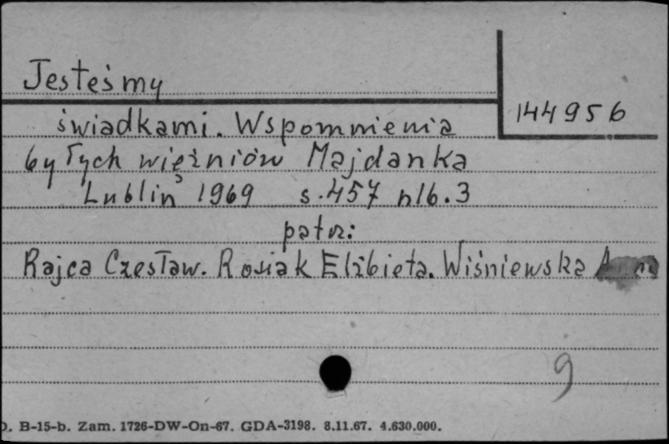 Jesteśmy
144956
świadkami. Wspomnienia
byłych więźniów Majdanka
Lublin 1969 s.457 nlb.3
patrz:
Rajca Czesław. Rosiak Elżbieta. Wiśniewska
9
D. B-15-b. Zam. 1726-DW-On-67. GDA-3198. 8.11.67. 4.630.000.